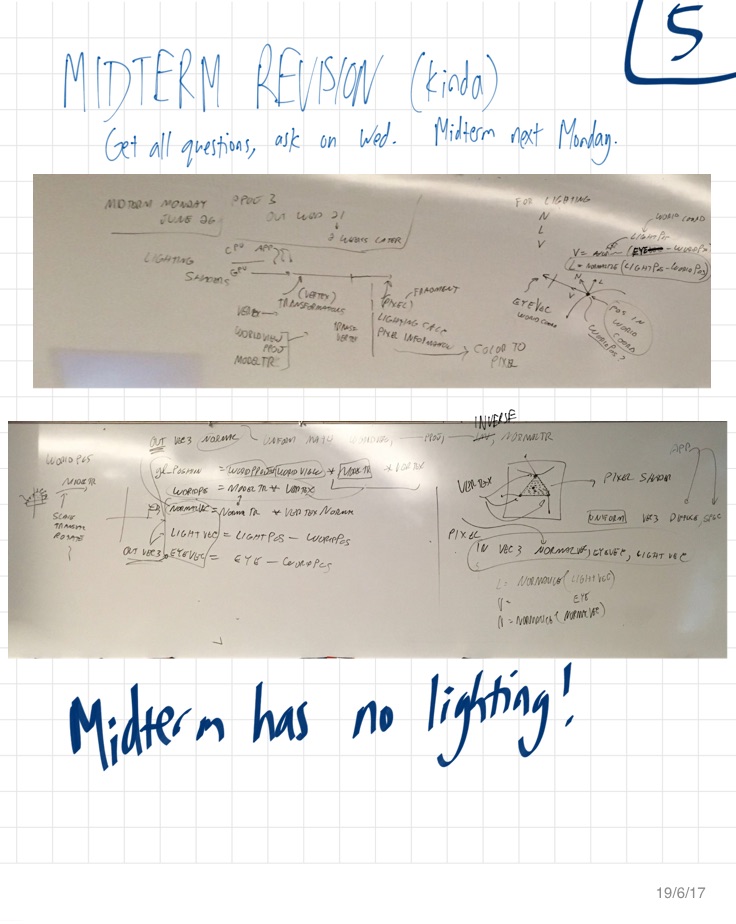 5
MIDTERM REVISION (kinda)
Get all questions, ask on Wed. Midterm next Monday.
MIDTERM MONDAY
JUNE 26
PROJ 3
OUT WED 21
2 WEEKS LATER
LIGHTING
SHADERS
CPU APP
GPU
(VERTEX)
TRANSFORMATIONS
WORLDVIEW
PROJ
MODELTR
(PIXEL) FRAGMENT
LIGHTING CALC
PIXEL INFORMATION
COLOR TO
PIXEL
FOR LIGHTING
N
L
V
WORLD COORD
LIGHTPOS
L = NORMALIZE (LIGHTPOS - WORLDPOS)
N
L
V
EYEVEC
WORLD COORD
POS IN
WORLD
COORD
WORLDPOS?
INVERSE
OUT VEC3 NORMAL
UNIFORM
PROJ,
NORMALTR
WORLDPOS
MODELTR
SCALE
TRANSLATE
ROTATE
gl_POSITION = WORLDPROJ * WORLDVIEW * MODELTR * VERTEX
WORLDPOS = MODELTR * VERTEX
NORMALVEC = NORMALTR * VERTEX NORMAL
LIGHTVEC = LIGHTPOS - WORLDPOS
OUT VEC3 EYEVEC = EYE - WORLDPOS
APP
VERTEX
PIXEL SHADER
UNIFORM VEC3 DIFFUSE, SPEC
PIXEL
IN VEC3 NORMALVEC, EYEVEC, LIGHTVEC
L = NORMALIZE (LIGHTVEC)
V = EYE
N = NORMALIZE (NORMALVEC)
Midterm has no lighting!
19/6/17